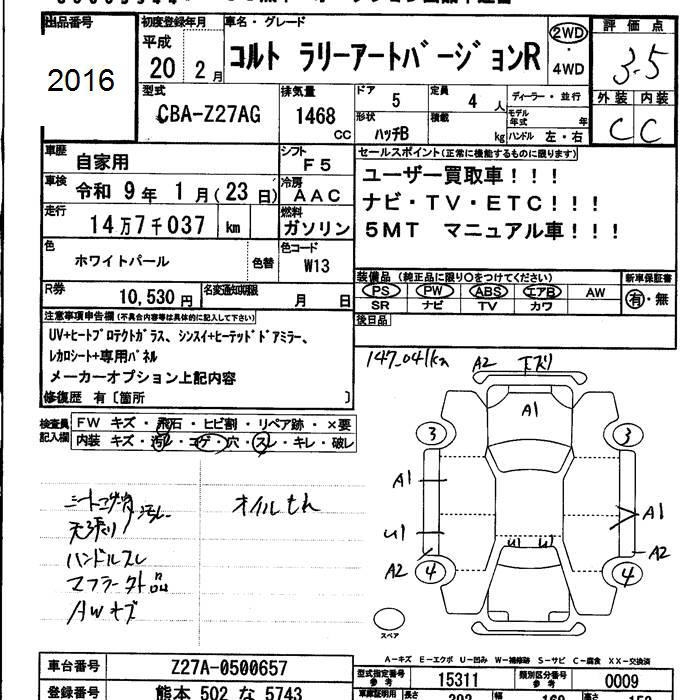 出品番号 初度登録年月 車名・グレード 評価点
2016 平成 20年 2月 コルト ラリーアートバージョンR 2WD・4WD 3.5
外装 内装
C C
型式 排気量 ドア 定員 ディーラー・並行
CBA-Z27AG 1468 CC 5 4 人 モデル年式 年
形状 積載
ハッチB kg ハンドル 左・右
車歴 自家用 シフト F5 セールスポイント(正常に機能するものに限ります)
車検 令和 9年 1月(23日) 冷房 AAC ユーザー買取車!!!
走行 14万7千037 km 燃料 ガソリン ナビ・TV・ETC!!!
5MT マニュアル車!!!
色 ホワイトパール 色替 色コード W13
装備品(純正品に限り○をつけてください) 新車保証書
PS PW ABS エアB AW 有・無
SR ナビ TV カワ
R券 10,530円 名変通知期限 月 日
後日品
注意事項申告欄(不具合内容等は具体的に記入して下さい)
UV+ヒートプロテクトガラス、シンスイ+ヒーテッドドアミラー、
レカロシート+専用パネル
メーカーオプション上記内容
修復歴 有〔箇所 〕
147,041km A2 下ズリ
検査員記入欄 FW キズ・飛石・ヒビ割・リペア跡・×要
内装 キズ・汚レ・コゲ・穴・スレ・キレ・破レ
A1
3 3
A1 A1
U1 U1 U1 A2
A2 4 4
オイルもれ
天張り
ハンドルスレ
マフラー外品
AWキズ
スペア
A-キズ E-エクボ U-凹み W-補修跡 S-サビ C-腐食 XX-交換済
車台番号 Z27A-0500657 型式指定番号 参考 15311 類別区分番号 参考 0009
登録番号 熊本 502 な 5743 車庫証明用 長さ 幅 高さ